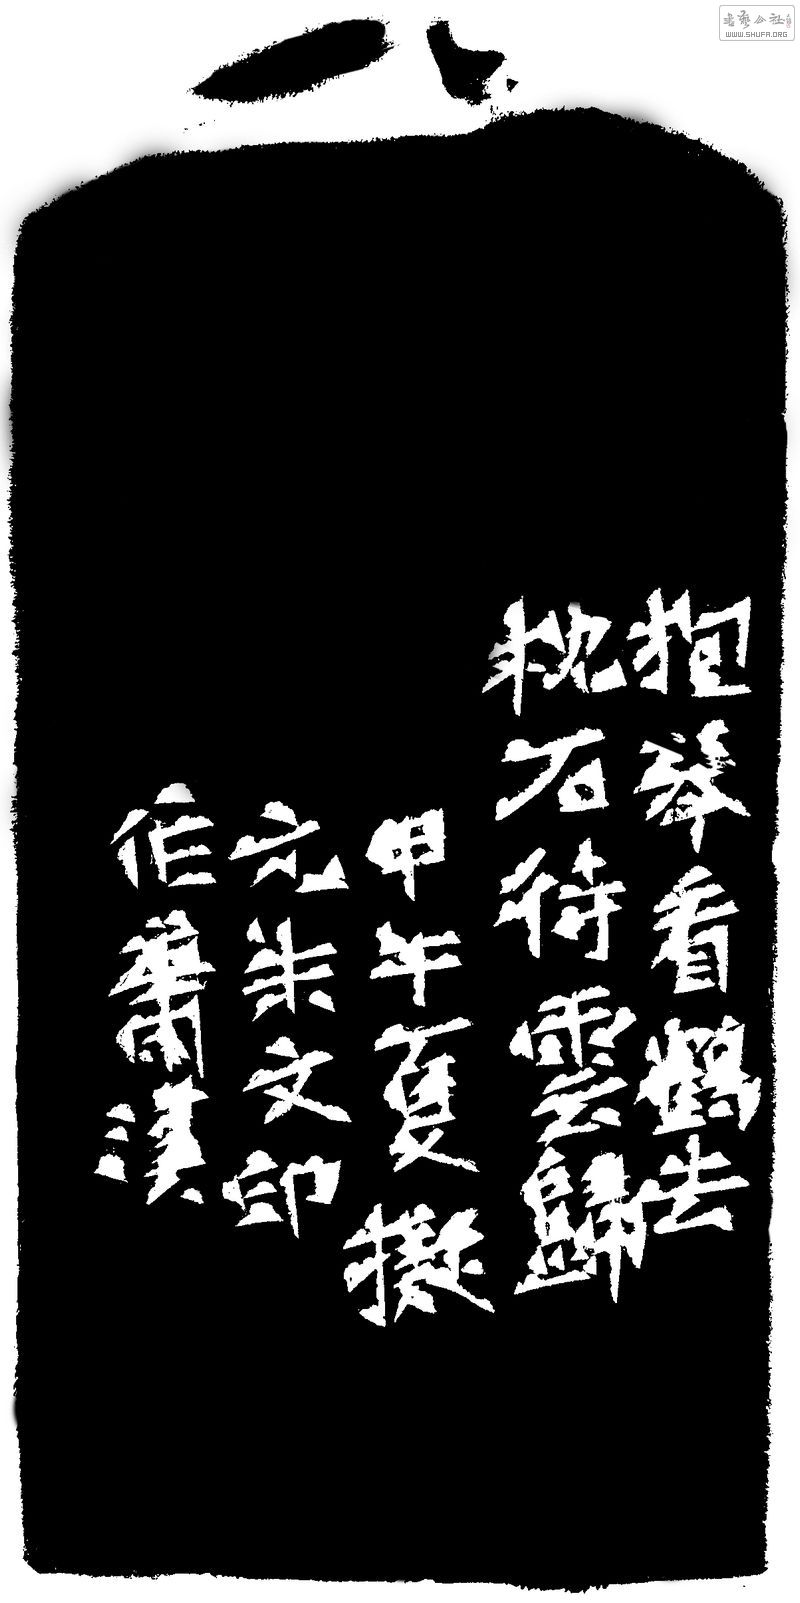 抱琴看鶴去
枕石待雲歸
甲午夏擬
元朱文印
作蕭漢
書藝公社
WWW.SHUFA.ORG